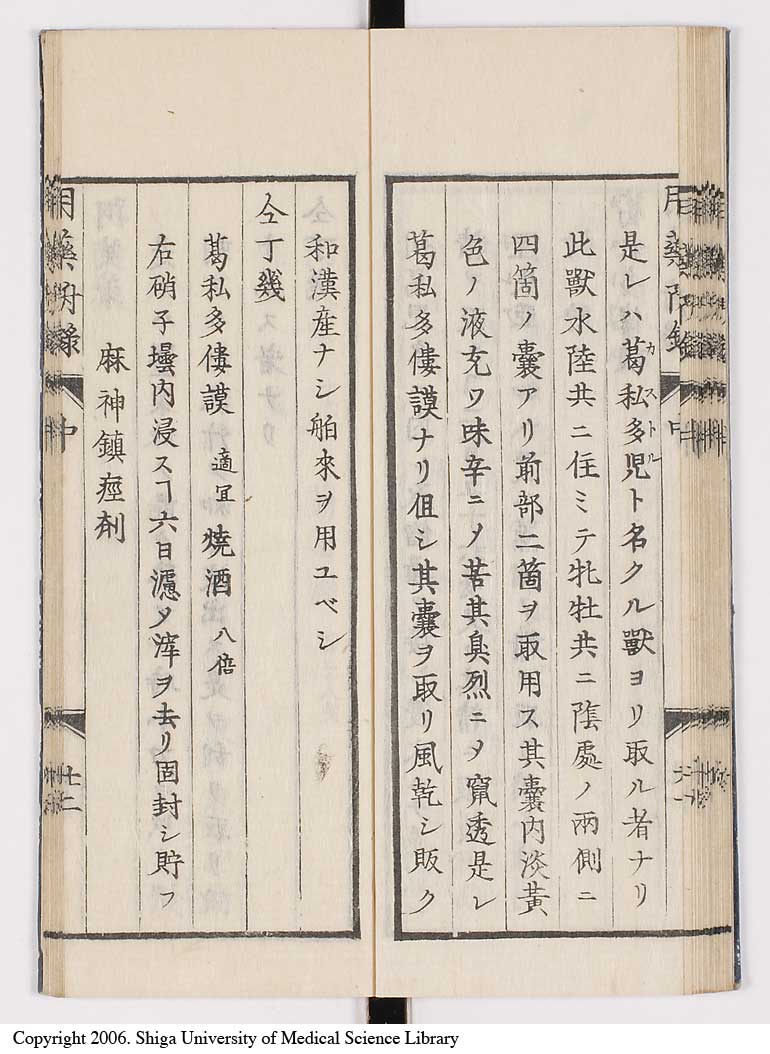 用藥附録 中
是レハ葛私多児ト名クル獸ヨリ取ル者ナリ
カストル
此獸水陸共ニ住ミテ牝牡共ニ陰處ノ兩側ニ
四箇ノ囊アリ前部二箇ヲ取用ス其囊内淡黄
色ノ液充ツ味辛ニメ苦其臭烈ニメ竄透是レ
葛私多僂謨ナリ但シ其囊ヲ取リ風乾シ販ク
和漢産ナシ舶來ヲ用ユベシ
仝丁幾
葛私多僂謨 適宜 燒酒 八倍
右硝子壜内浸スヿ六日濾メ滓ヲ去リ固封シ貯フ
麻神鎮痙剤
用藥附録 中 廿二
Copyright 2006. Shiga University of Medical Science Library